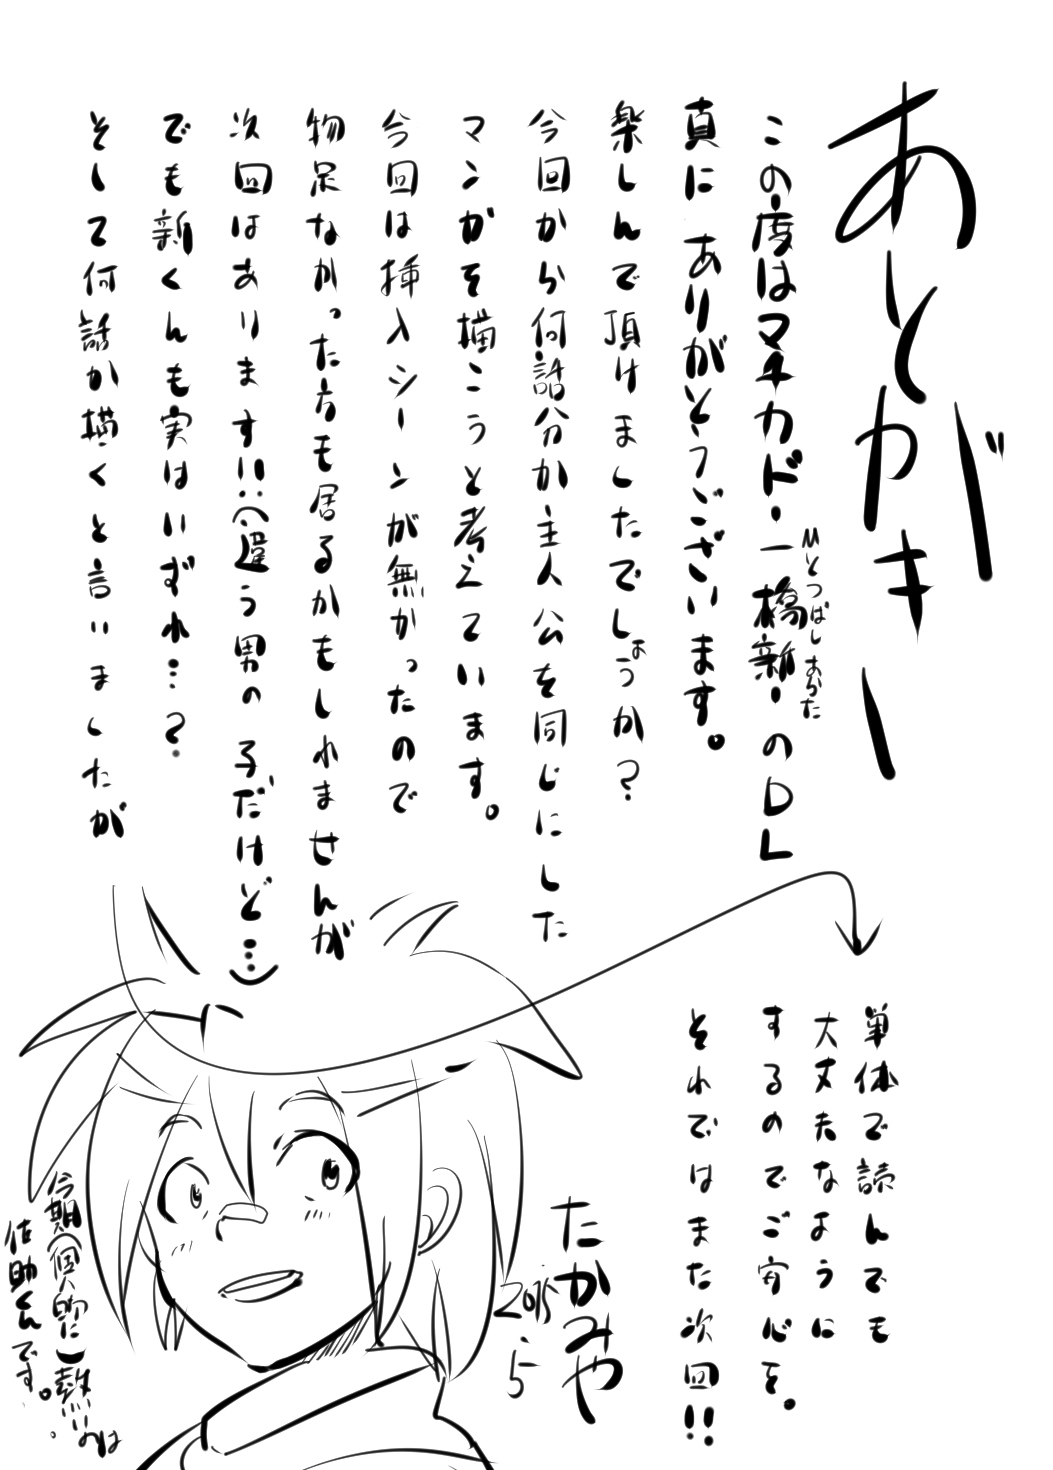 あとがきー
この度はマチカド・一橋新・のDL
ひとつばし あらた
真にありがとうございます。
楽しんで頂けましたでしょうか?
今回から何話分か主人公を同じにした
マンガを描こうと考えています。
今回は挿入シーンが無かったので
物足なかった方も居るかもしれませんが
次回はあります!!(違う男の子だけど…)
でも新くんも実はいずれ…?
そして何話か描くと言いましたが
単体で読んでも
大丈夫なように
するのでご安心を。
それではまた次回!!
たかみや
2015.5
今期(個人的に)熱いのは
佐助くんです。